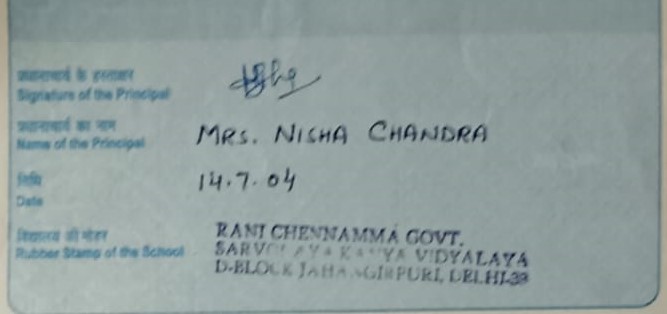 प्रधानाचार्य के हस्ताक्षर
Signature of the Principal
प्रधानाचार्य का नाम
Name of the Principal
MRS. NISHA CHANDRA
तिथि
Date
14.7.04
विद्यालय की मोहर
Rubber Stamp of the School
RANI CHENNAMMA GOVT.
SARVODAYA KANYA VIDYALAYA
D-BLOCK JAHANGIRPURI, DELHI-33